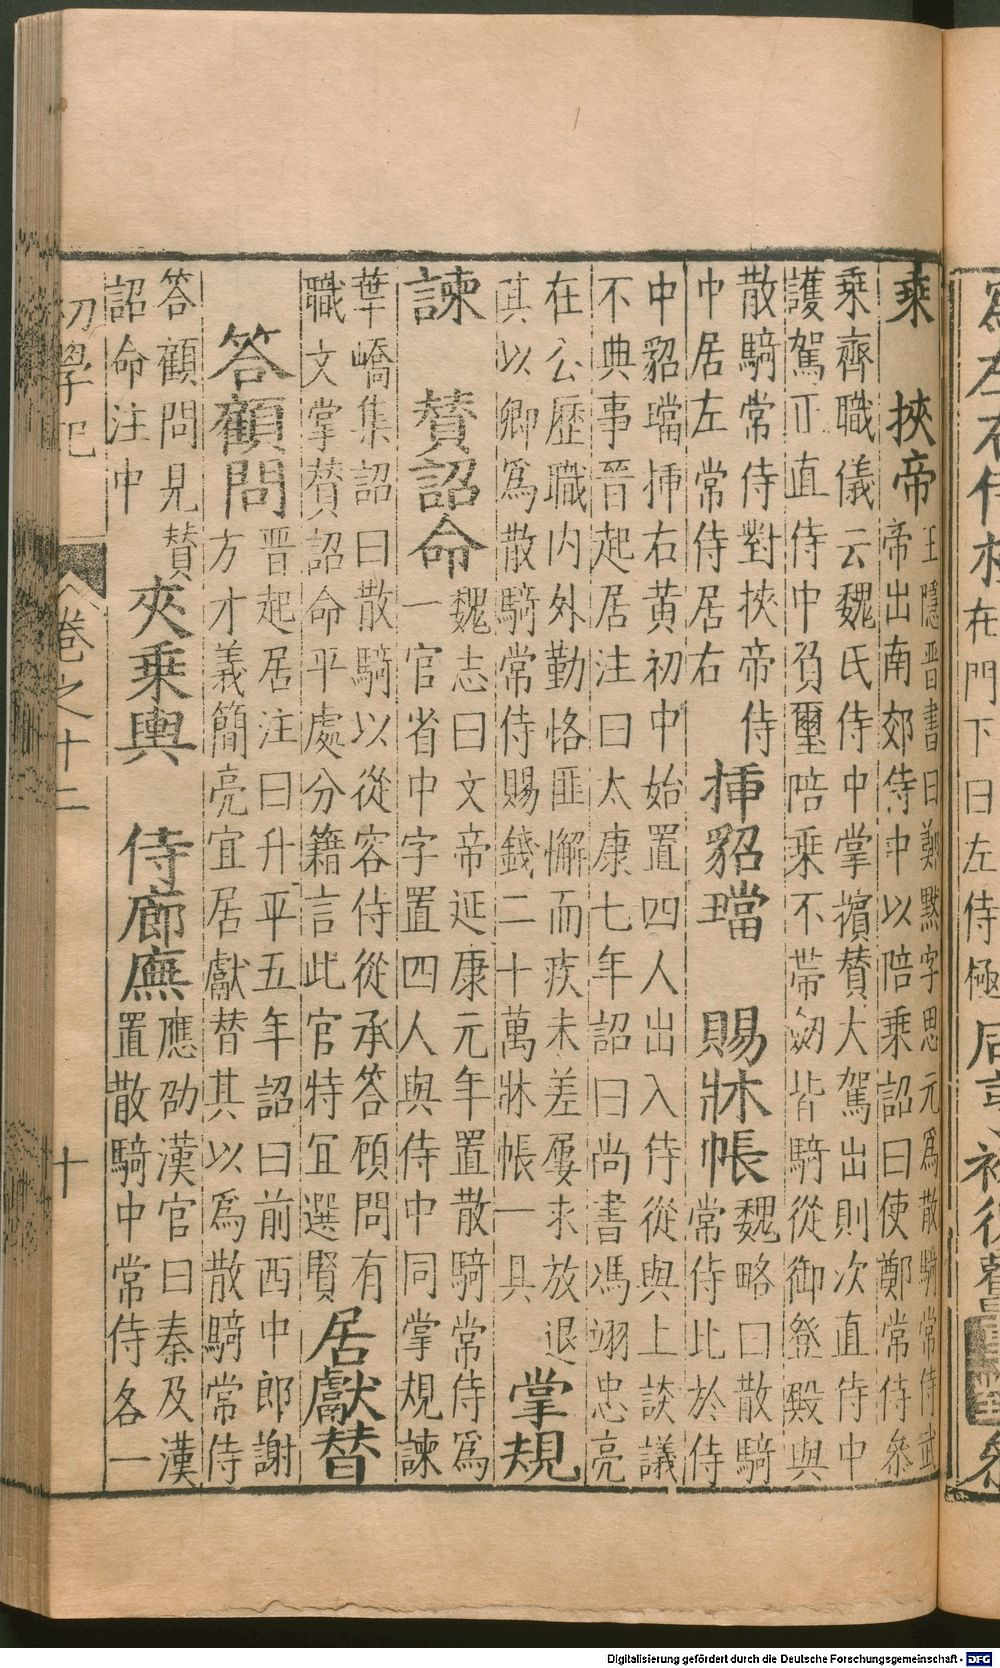 左右侍
在門下曰左侍極
乘 挾帝
王隱晉書曰鄭默字思元爲散騎常侍武
帝出南郊侍中以陪乘詔曰使鄭常侍參
乘齊職儀云魏氏侍中掌擯賛大駕出則次直侍中
護駕正直侍中負璽陪乘不帶劒皆騎從御登殿與
散騎常侍對挾帝侍
中居左常侍居右
挿貂璫 賜牀帳
魏略曰散騎
常侍比於侍
中貂璫挿右黄初中始置四人出入侍從與上談議
不典事晉起居注曰太康七年詔曰尚書馮翊忠亮
在公歷職内外勤恪匪懈而疾未差屢求放退
其以卿爲散騎常侍賜錢二十萬牀帳一具
掌規
諫 賛詔命
魏志曰文帝延康元年置散騎常侍爲
一官省中字置四人與侍中同掌規諫
華嶠集詔曰散騎以從容侍從承答顧問有
職文掌賛詔命平處分籍言此官特冝選賢
居獻替
答顧問
晋起居注曰升平五年詔曰前西中郎謝
方才義簡亮宜居獻替其以爲散騎常侍
答顧問見賛
詔命注中
夾乗輿 侍廊廡
應劭漢官曰秦及漢
置散騎中常侍各一
初學記 卷之十二 十
Digitalisierung gefördert durch die Deutsche Forschungsgemeinschaft - DFG